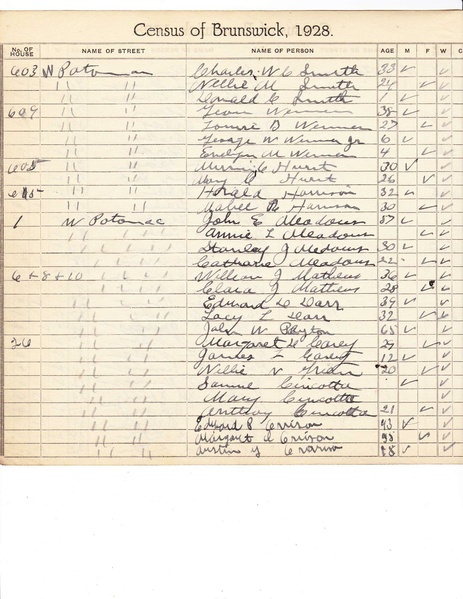 Census of Brunswick, 1928.
No. OF HOUSE NAME OF STREET NAME OF PERSON AGE M F W C
603 N Potomac Charles W C Smith 33 ✓ ✓
" " Nellie M Smith ✓ ✓
" " Donald C Smith ✓ ✓
609 " " Werner 38 ✓ ✓
" " D Werner 27 ✓ ✓
" " George W Werner Jr 6 ✓ ✓
" " Evelyn M Werner 4 ✓ ✓
605 " " C Hurst 30 ✓ ✓
" " Mary C Hurst 26 ✓ ✓
615 " " Harold Harrison 32 ✓ ✓
" " Mabel Harrison 30 ✓ ✓
1 W Potomac John E Meadows 57 ✓ ✓
" " Annie L Meadows ✓ ✓
" " Stanley J Meadows 30 ✓ ✓
" " Catharine Meadows 22 ✓ ✓
6+8+10 " " William J Mathews 36 ✓ ✓
" " Clara J Mathews 28 ✓ ✓
" " Edward D Darr 39 ✓ ✓
" " Lacy L Darr 32 ✓ ✓
" " John W Peyton 65 ✓ ✓
26 " " Margaret D Carey 27 ✓ ✓
" " James Carey 12 ✓ ✓
" " Nellie V Green 20 ✓ ✓
" " Samuel Cincotta ✓ ✓
" " Mary Cincotta ✓
" " Anthony Cincotta 21 ✓ ✓
" " Edward P 93 ✓ ✓
" " Margaret ✓ ✓
" " Austin ✓ ✓